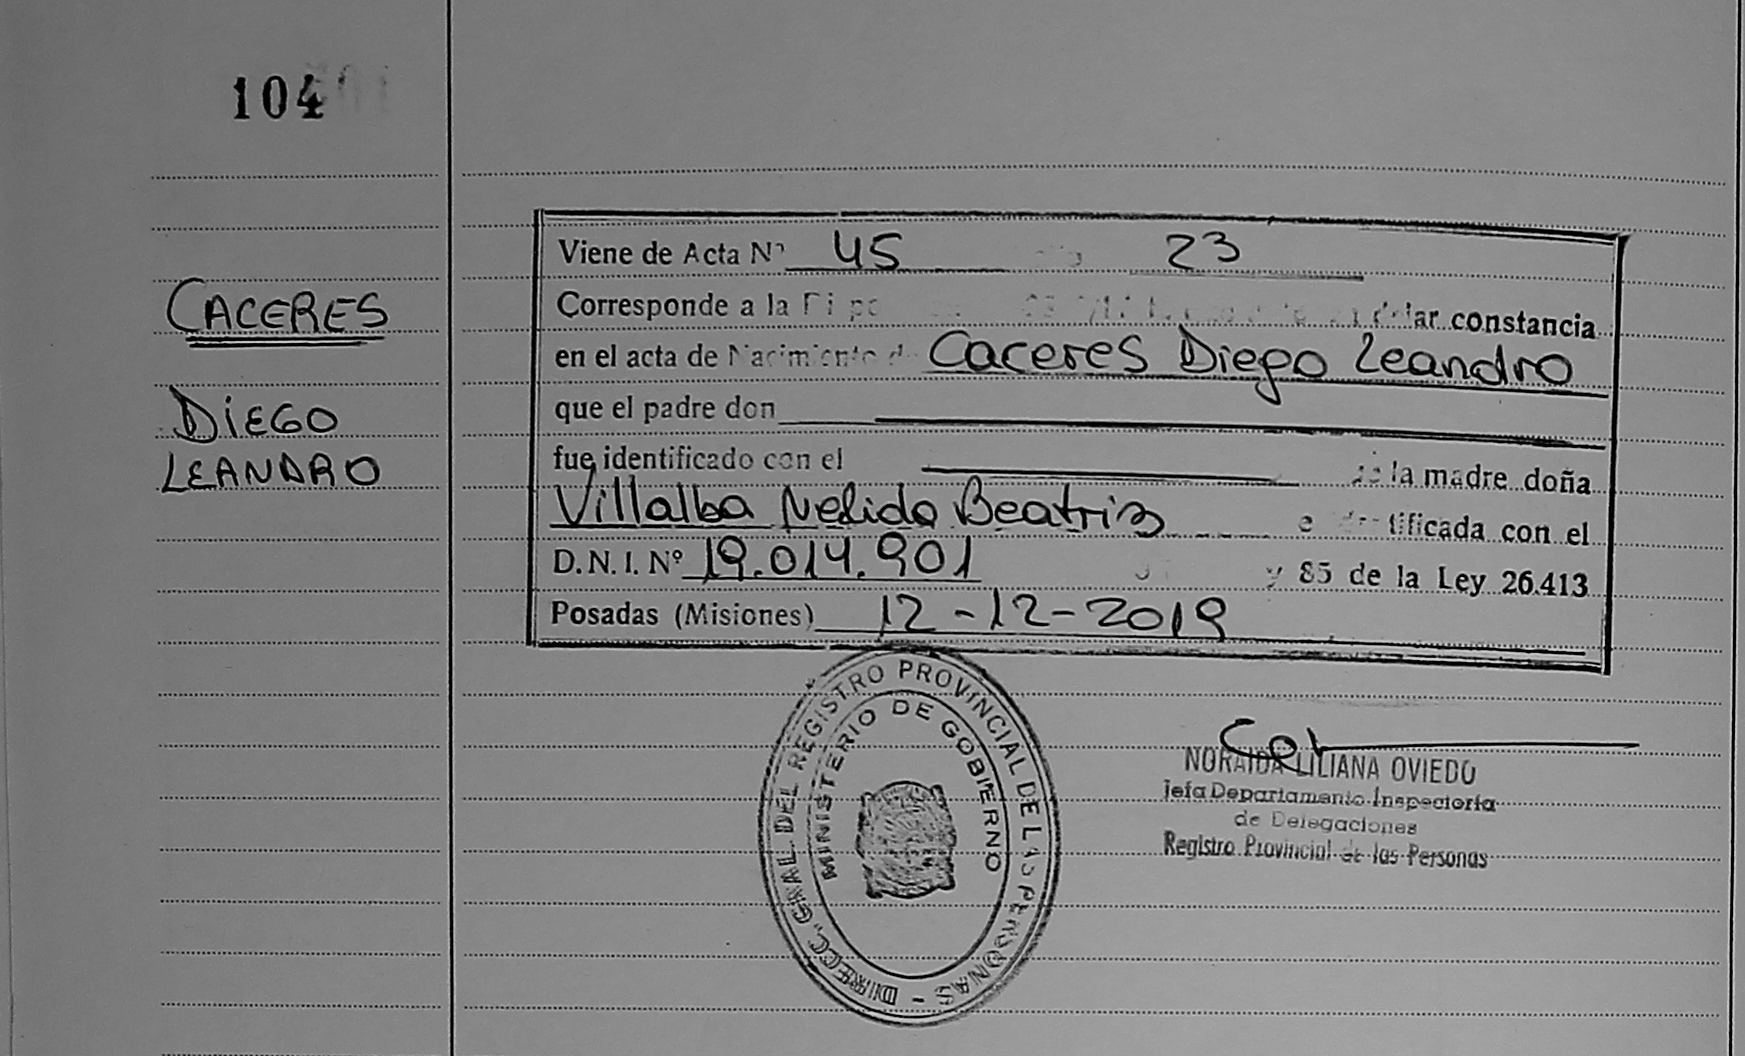 104
CACERES
DIEGO
LEANDRO
Viene de Acta Nº 45 23
Corresponde a la constancia
en el acta de Nacimiento d Caceres Diego Leandro
que el padre don
fue identificado con el la madre doña
Villalba Nelida Beatriz tificada con el
D.N.I. Nº 19.014.901 y 85 de la Ley 26.413
Posadas (Misiones) 12-12-2019
DIRECC. GRAL. DEL REGISTRO PROVINCIAL DE LAS PERSONAS -
MINISTERIO DE GOBIERNO
NORAIDA LILIANA OVIEDO
Jefa Departamento Inspectoría
de Delegaciones
Registro Provincial de las Personas